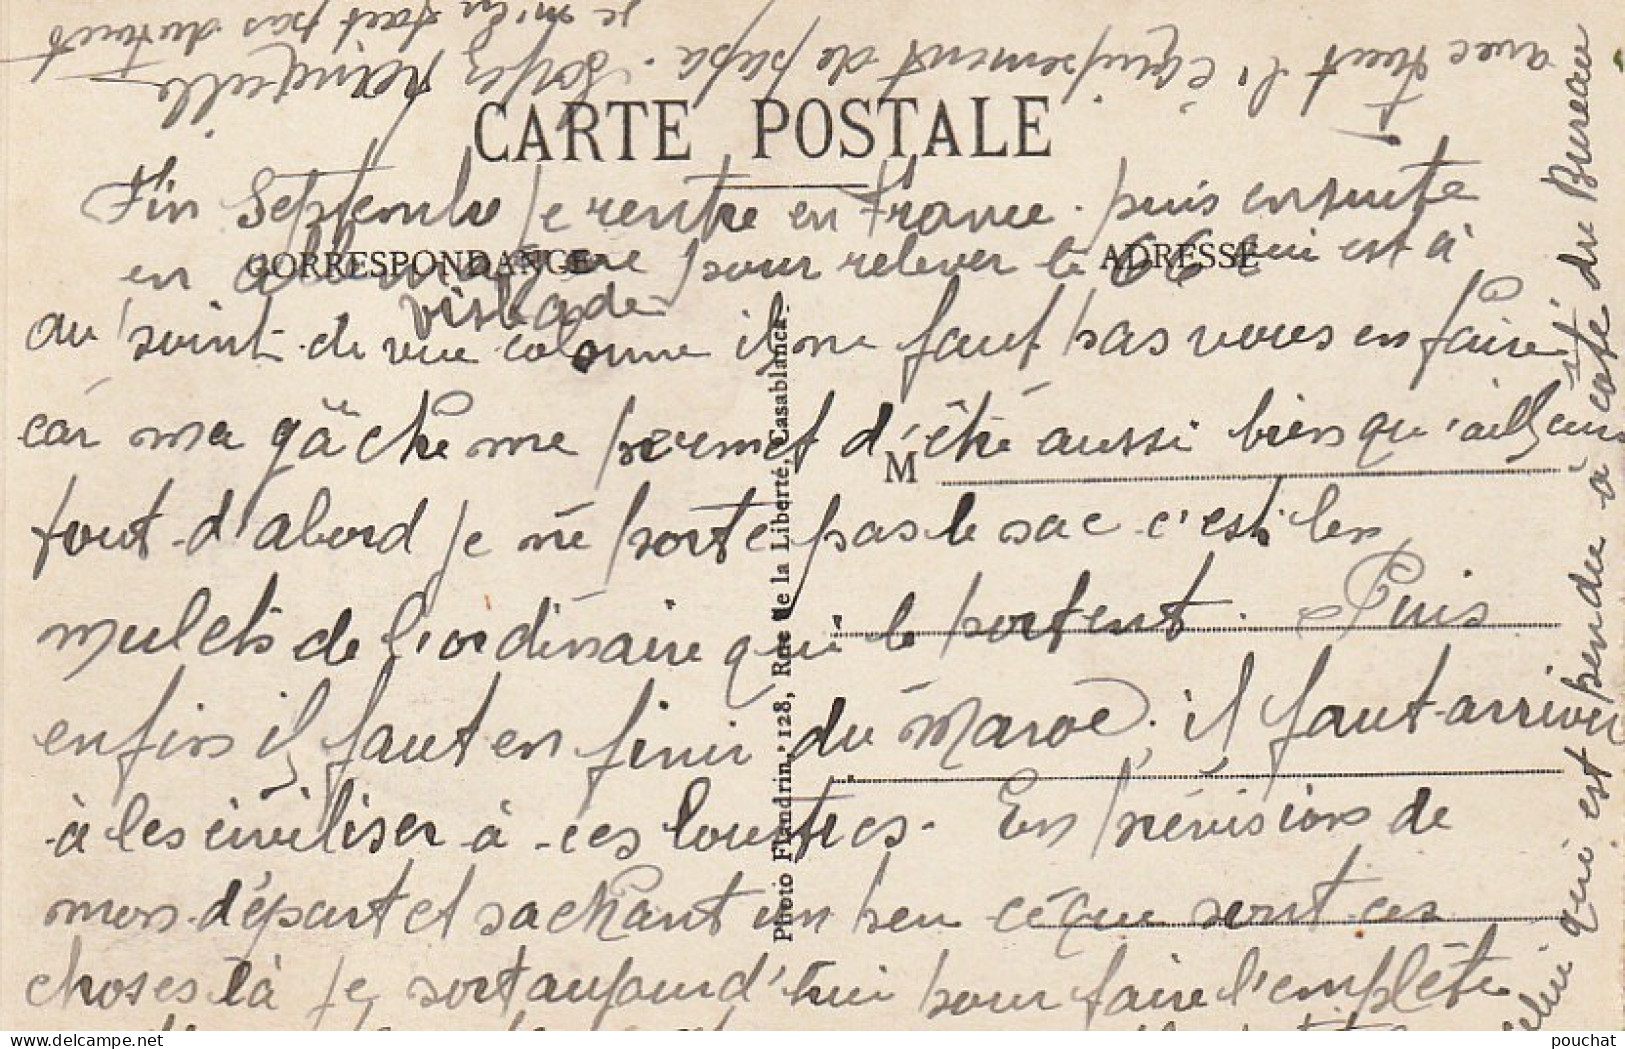 avec tout l'équipement de papa. Soyez tranquille
je m'en fait pas du tout
CARTE POSTALE
Fin Septembre je rentre en France. puis ensuite
CORRESPONDANCE
ADRESSE
en allemagne pour relever le 66 qui est à
visbade
au point de vue colonne il ne faut pas vous en faire
car ma gâche me permet d'être aussi bien qu'ailleurs
M
tout d'abord je ne porte pas le sac c'est les
mulets de l'ordinaire qui le portent. Puis
enfin il faut en finir du Maroc, il faut arriver
à les civiliser à ces loustics. En prévisions de
mon départ et sachant un peu ce que sont ces
choses là je sort aujourd'hui pour faire l'emplète
Photo Flandrin, 128, Rue de la Liberté, Casablanca.
qui est pendu à coté du Bureau
pouchat